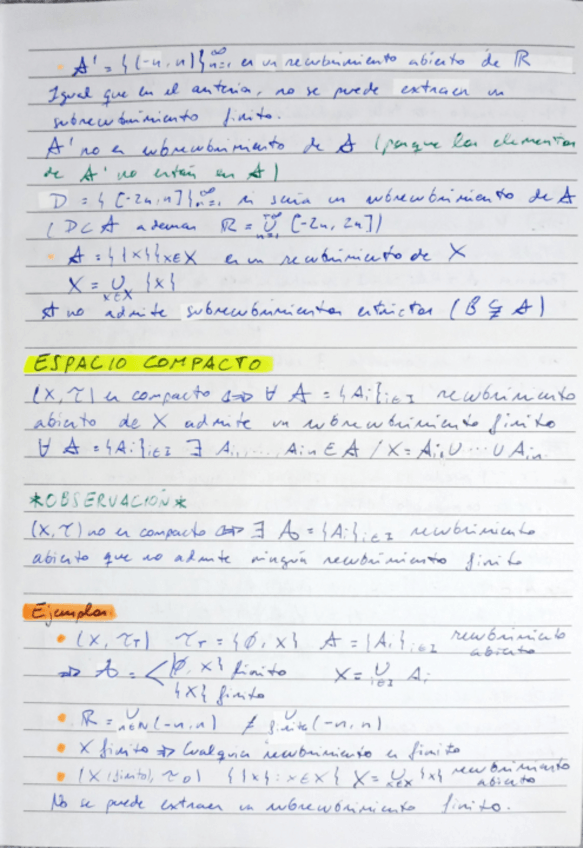 • A' = {(-n, n)}_{n=1}^∞ es un recubrimiento abierto de ℝ
Igual que en el anterior, no se puede extraer un
subrecubrimiento finito.
A' no es subrecubrimiento de A (porque los elementos
de A' no están en A)
D = {[-2n, n]}_{n=1}^∞ si sería un subrecubrimiento de A
(D⊂A ademas ℝ = ∪_{n=1}^{+∞} [-2n, 2n])
• A = {{x}}_{x∈X} es un recubrimiento de X
X = ∪_{x∈X} {x}
A no admite subrecubrimientos estrictos (B ⊊ A)
ESPACIO COMPACTO
(X, τ) es compacto ⟺ ∀ A = {Ai}_{i∈I} recubrimiento
abierto de X admite un subrecubrimiento finito
∀ A = {Ai}_{i∈I} ∃ Ai₁, ..., Ain ∈ A / X = Ai₁ ∪ ... ∪ Ain
*OBSERVACIÓN*
(X, τ) no es compacto ⟺ ∃ A = {Ai}_{i∈I} recubrimiento
abierto que no admite ningún recubrimiento finito
Ejemplos
• (X, τ_T) τ_T = {∅, X} A = {Ai}_{i∈I} recubrimiento abierto
⟹ A = < {∅, X} finito X = ∪_{i∈I} Ai
{X} finito
• ℝ = ∪_{n∈ℕ} (-n, n) ≠ ∪_{finita} (-n, n)
• X finito ⟹ Cualquier recubrimiento es finito
• (X, τ_D) {{x} : x∈X} X = ∪_{x∈X} {x} recubrimiento abierto
No se puede extraer un subrecubrimiento finito.